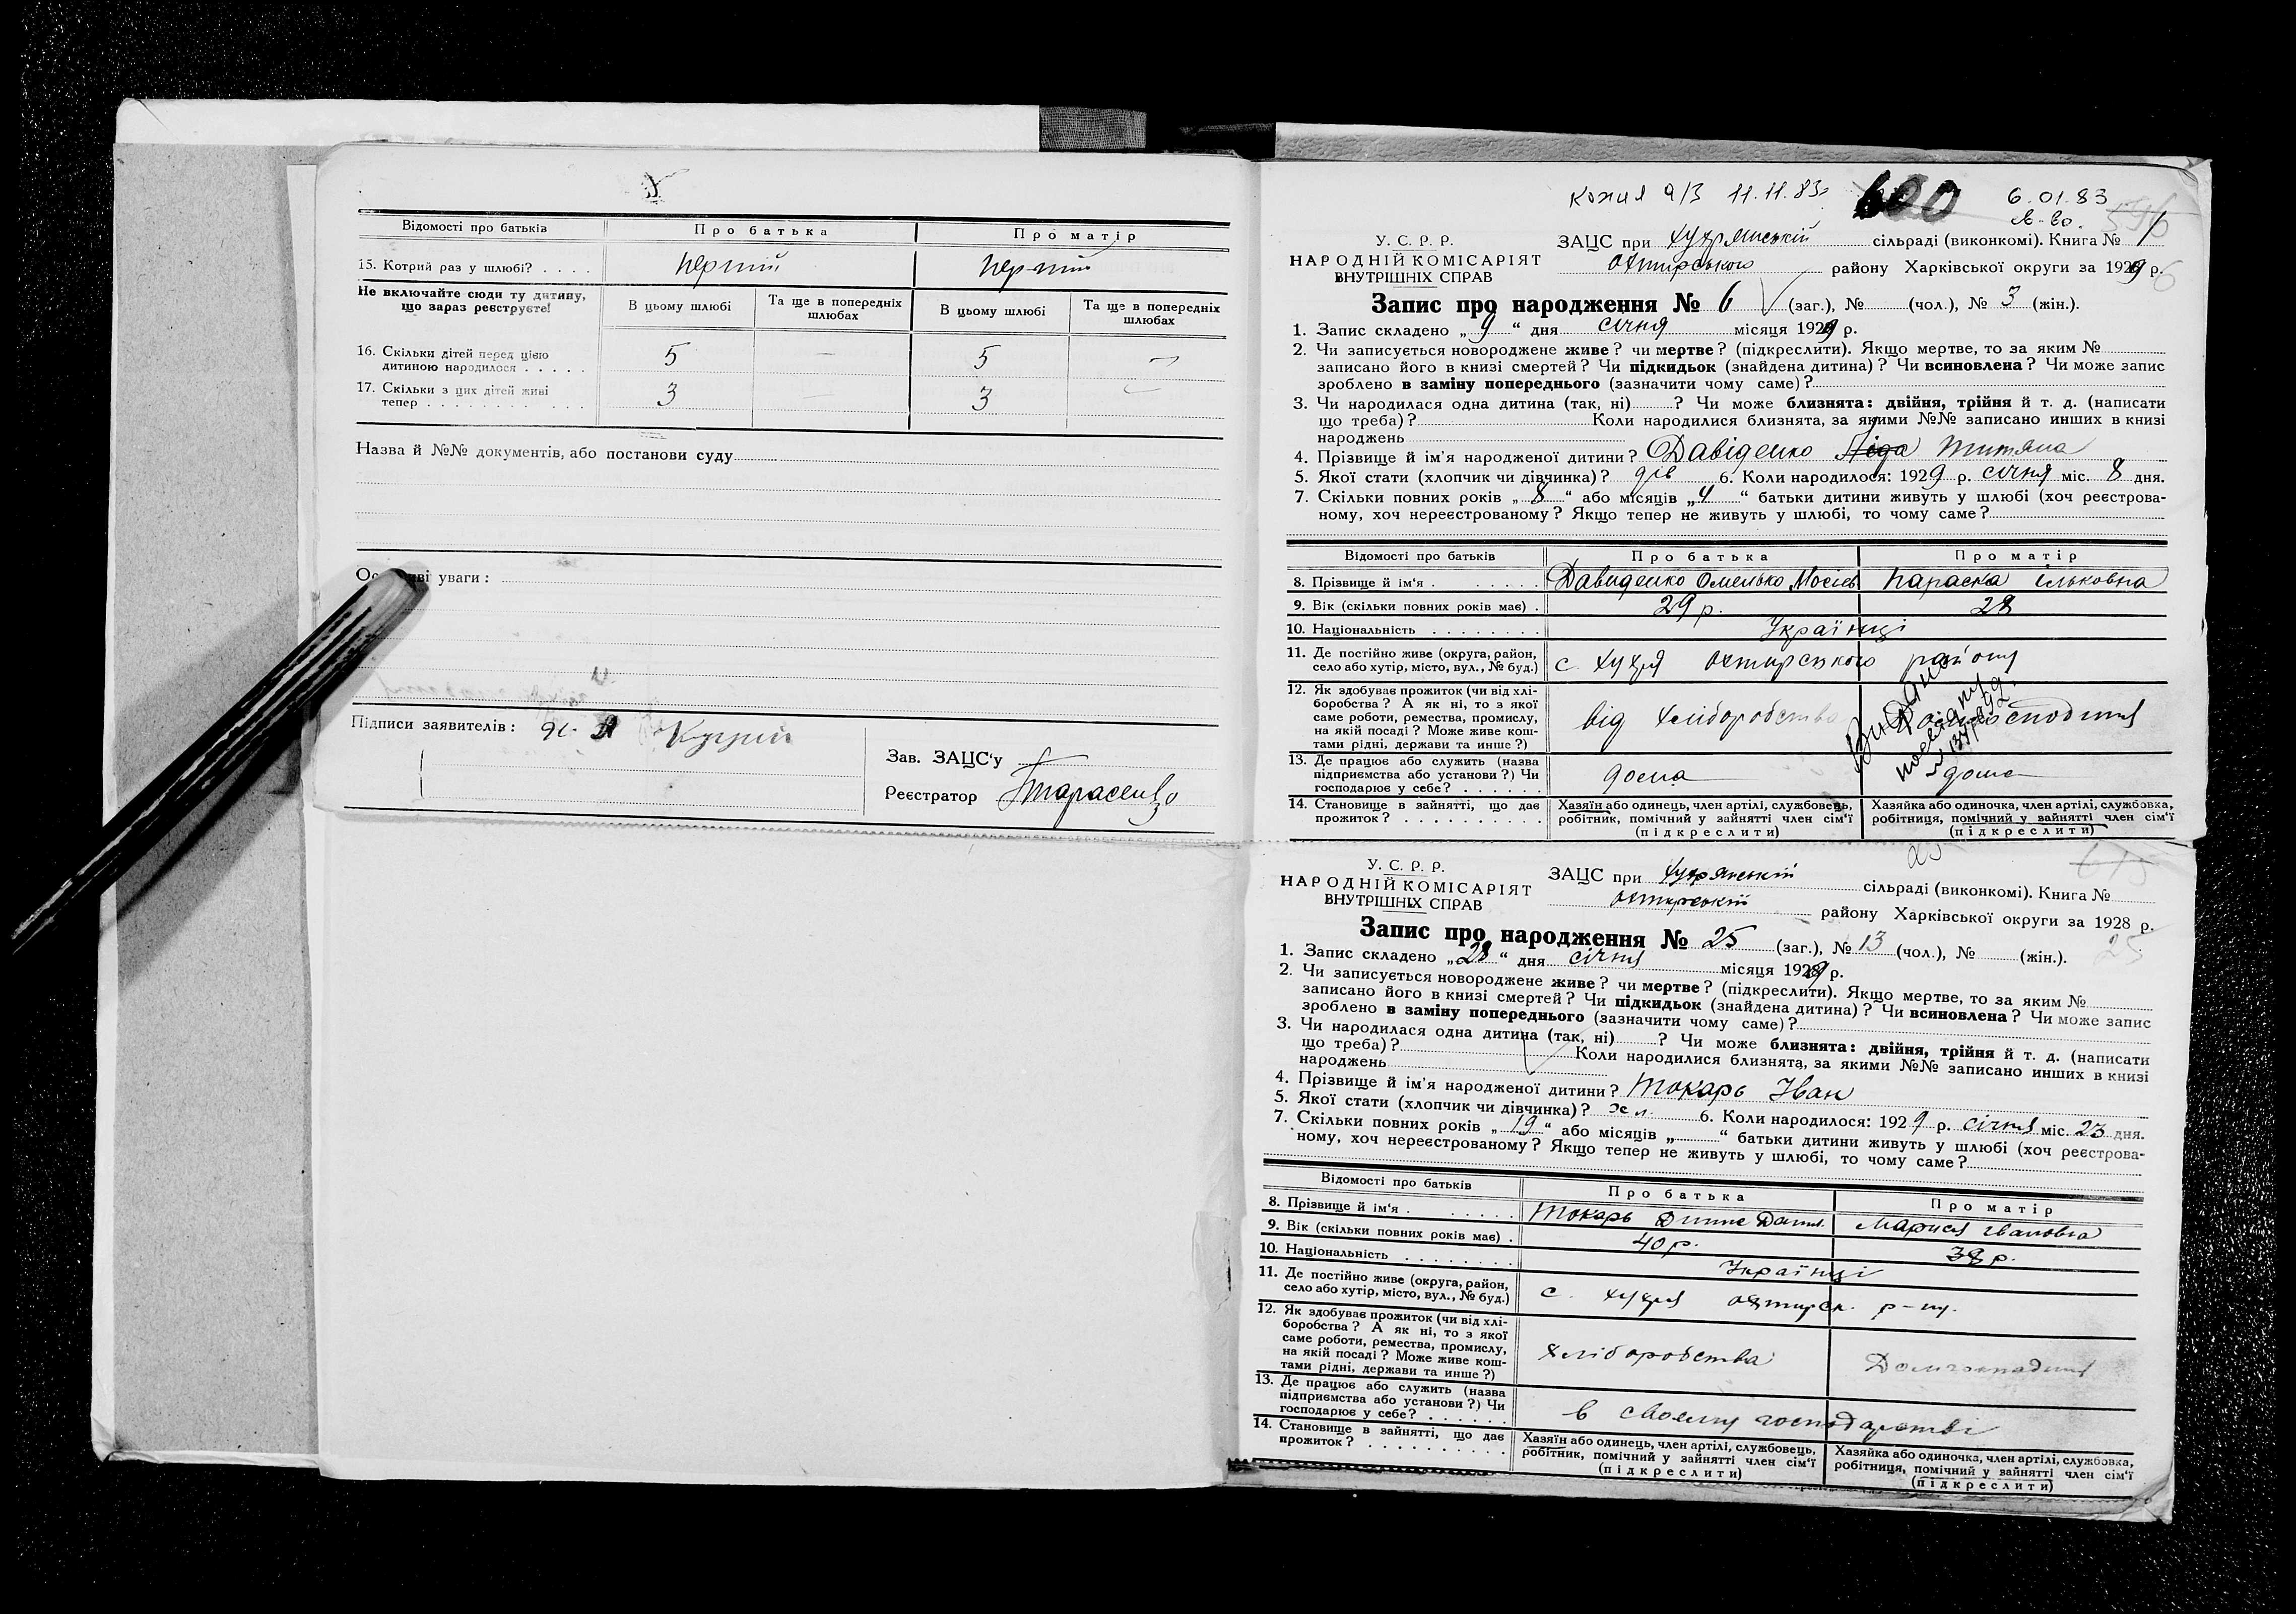 Відомості про батьків Про батька Про матір
15. Котрий раз у шлюбі? . . . . перший перший
Не включайте сюди ту дитину, що зараз реєструєте!
В цьому шлюбі Та ще в попередніх шлюбах В цьому шлюбі Та ще в попередніх шлюбах
16. Скільки дітей перед цією
дитиною народилося . . . . . 5 — 5 —
17. Скільки з цих дітей живі
тепер . . . . . . . . . . . . 3 — 3 —
Назва й №№ документів, або постанови суду
уваги :
Підписи заявителів :
Зав. ЗАЦС'у
Реєстратор Тарасенко
Копия а/з 11.11.83г. 600 6.01.83
У. С. Р. Р.
НАРОДНІЙ КОМІСАРІЯТ
ВНУТРІШНІХ СПРАВ
ЗАЦС при Хухрянській сільраді (виконкомі). Книга № 1
Охтирського району Харківської округи за 1929 р.
Запис про народження № 6 (заг.), № (чол.), № 3 (жін.).
1. Запис складено „ 9 “ дня січня місяця 1929 р.
2. Чи записується новороджене живе? чи мертве? (підкреслити). Якщо мертве, то за яким №
записано його в книзі смертей? Чи підкидьок (знайдена дитина)? Чи всиновлена? Чи може запис
зроблено в заміну попереднього (зазначити чому саме)?
3. Чи народилася одна дитина (так, ні) ? Чи може близнята: двійня, трійня й т. д. (написати
що треба)? Коли народилися близнята, за якими №№ записано инших в книзі
народжень
4. Прізвище й ім'я народженої дитини? Давіденко Ліда Титяна
5. Якої стати (хлопчик чи дівчинка)? дів 6. Коли народилося: 1929 р. січня міс. 8 дня.
7. Скільки повних років „ 8 “ або місяців „ 4 “ батьки дитини живуть у шлюбі (хоч реєстрова-
ному, хоч нереєстрованому? Якщо тепер не живуть у шлюбі, то чому саме?
Відомості про батьків Про батька Про матір
8. Прізвище й ім'я . . . . . . Давиденко Омелько Мосієв Параска Ільковна
9. Вік (скільки повних років має) . 29 р. 28
10. Національність . . . . . . . . Українці
11. Де постійно живе (округа, район,
село або хутір, місто, вул., № буд.) с. Хухря Охтирського району
12. Як здобуває прожиток (чи від хлі-
боробства? А як ні, то з якої
саме роботи, ремества, промислу,
на якій посаді? Може живе кош-
тами рідні, держави та инше?) від хліборобства
13. Де працює або служить (назва
підприємства або установи?) Чи
господарює у себе? . . . . . . дома дома
14. Становище в зайнятті, що дає
прожиток? . . . . . . . . . .
Хазяїн або одинець, член артілі, службовець,
робітник, помічний у зайнятті член сім'ї
(підкреслити)
Хазяйка або одиночка, член артілі, службовка,
робітниця, помічний у зайнятті член сім'ї
(підкреслити)
У. С. Р. Р.
НАРОДНІЙ КОМІСАРІЯТ
ВНУТРІШНІХ СПРАВ
ЗАЦС при Хухрянській сільраді (виконкомі). Книга №
Охтирській району Харківської округи за 1928 р.
Запис про народження № 25 (заг.), № 13 (чол.), № (жін.). 25
1. Запис складено „ 28 “ дня січня місяця 1929 р.
2. Чи записується новороджене живе? чи мертве? (підкреслити). Якщо мертве, то за яким №
записано його в книзі смертей? Чи підкидьок (знайдена дитина)? Чи всиновлена? Чи може запис
зроблено в заміну попереднього (зазначити чому саме)?
3. Чи народилася одна дитина (так, ні) ? Чи може близнята: двійня, трійня й т. д. (написати
що треба)? Коли народилися близнята, за якими №№ записано инших в книзі
народжень
4. Прізвище й ім'я народженої дитини? Токарь Іван
5. Якої стати (хлопчик чи дівчинка)? хл. 6. Коли народилося: 1929 р. січня міс. 23 дня.
7. Скільки повних років „ 19 “ або місяців „ “ батьки дитини живуть у шлюбі (хоч реєстрова-
ному, хоч нереєстрованому? Якщо тепер не живуть у шлюбі, то чому саме?
Відомості про батьків Про батька Про матір
8. Прізвище й ім'я . . . . . . Токарь Марися Івановна
9. Вік (скільки повних років має) . 40 р. 38 р.
10. Національність . . . . . . . . Українці
11. Де постійно живе (округа, район,
село або хутір, місто, вул., № буд.) с. Хухря Охтирск. р-ну.
12. Як здобуває прожиток (чи від хлі-
боробства? А як ні, то з якої
саме роботи, ремества, промислу,
на якій посаді? Може живе кош-
тами рідні, держави та инше?) хліборобства Домгосподиня
13. Де працює або служить (назва
підприємства або установи?) Чи
господарює у себе? . . . . . . в своему господарстві
14. Становище в зайнятті, що дає
прожиток? . . . . . . . . . .
Хазяїн або одинець, член артілі, службовець,
робітник, помічний у зайнятті член сім'ї
(підкреслити)
Хазяйка або одиночка, член артілі, службовка,
робітниця, помічний у зайнятті член сім'ї
(підкреслити)